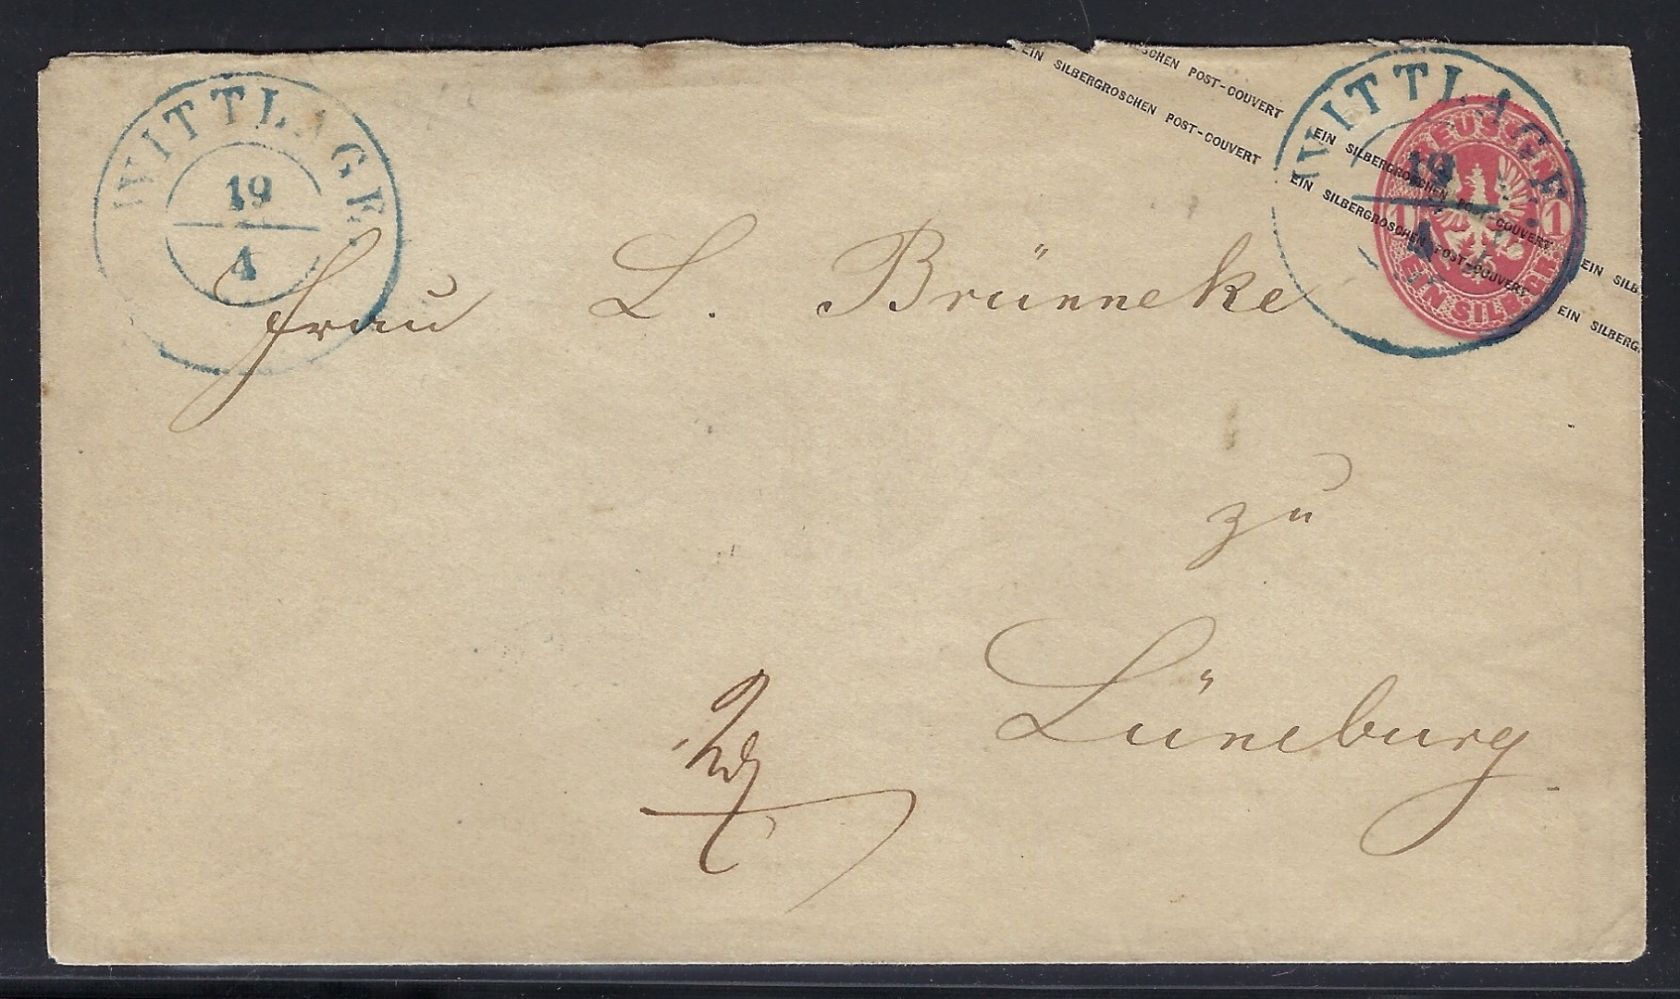 WITTLAGE.
19
4
EIN SILBERGROSCHEN POST-COUVERT
SCHEN POST-COUVERT
EIN SILBERGROSCHEN POST-COUVERT
EIN SILBERGROSCHEN POST-COUVERT
EIN SILB
EIN SILBERG
WITTLAGE.
19
4
1 1
EIN SILB.GR.
Frau L. Brünneke
zu
Lüneburg